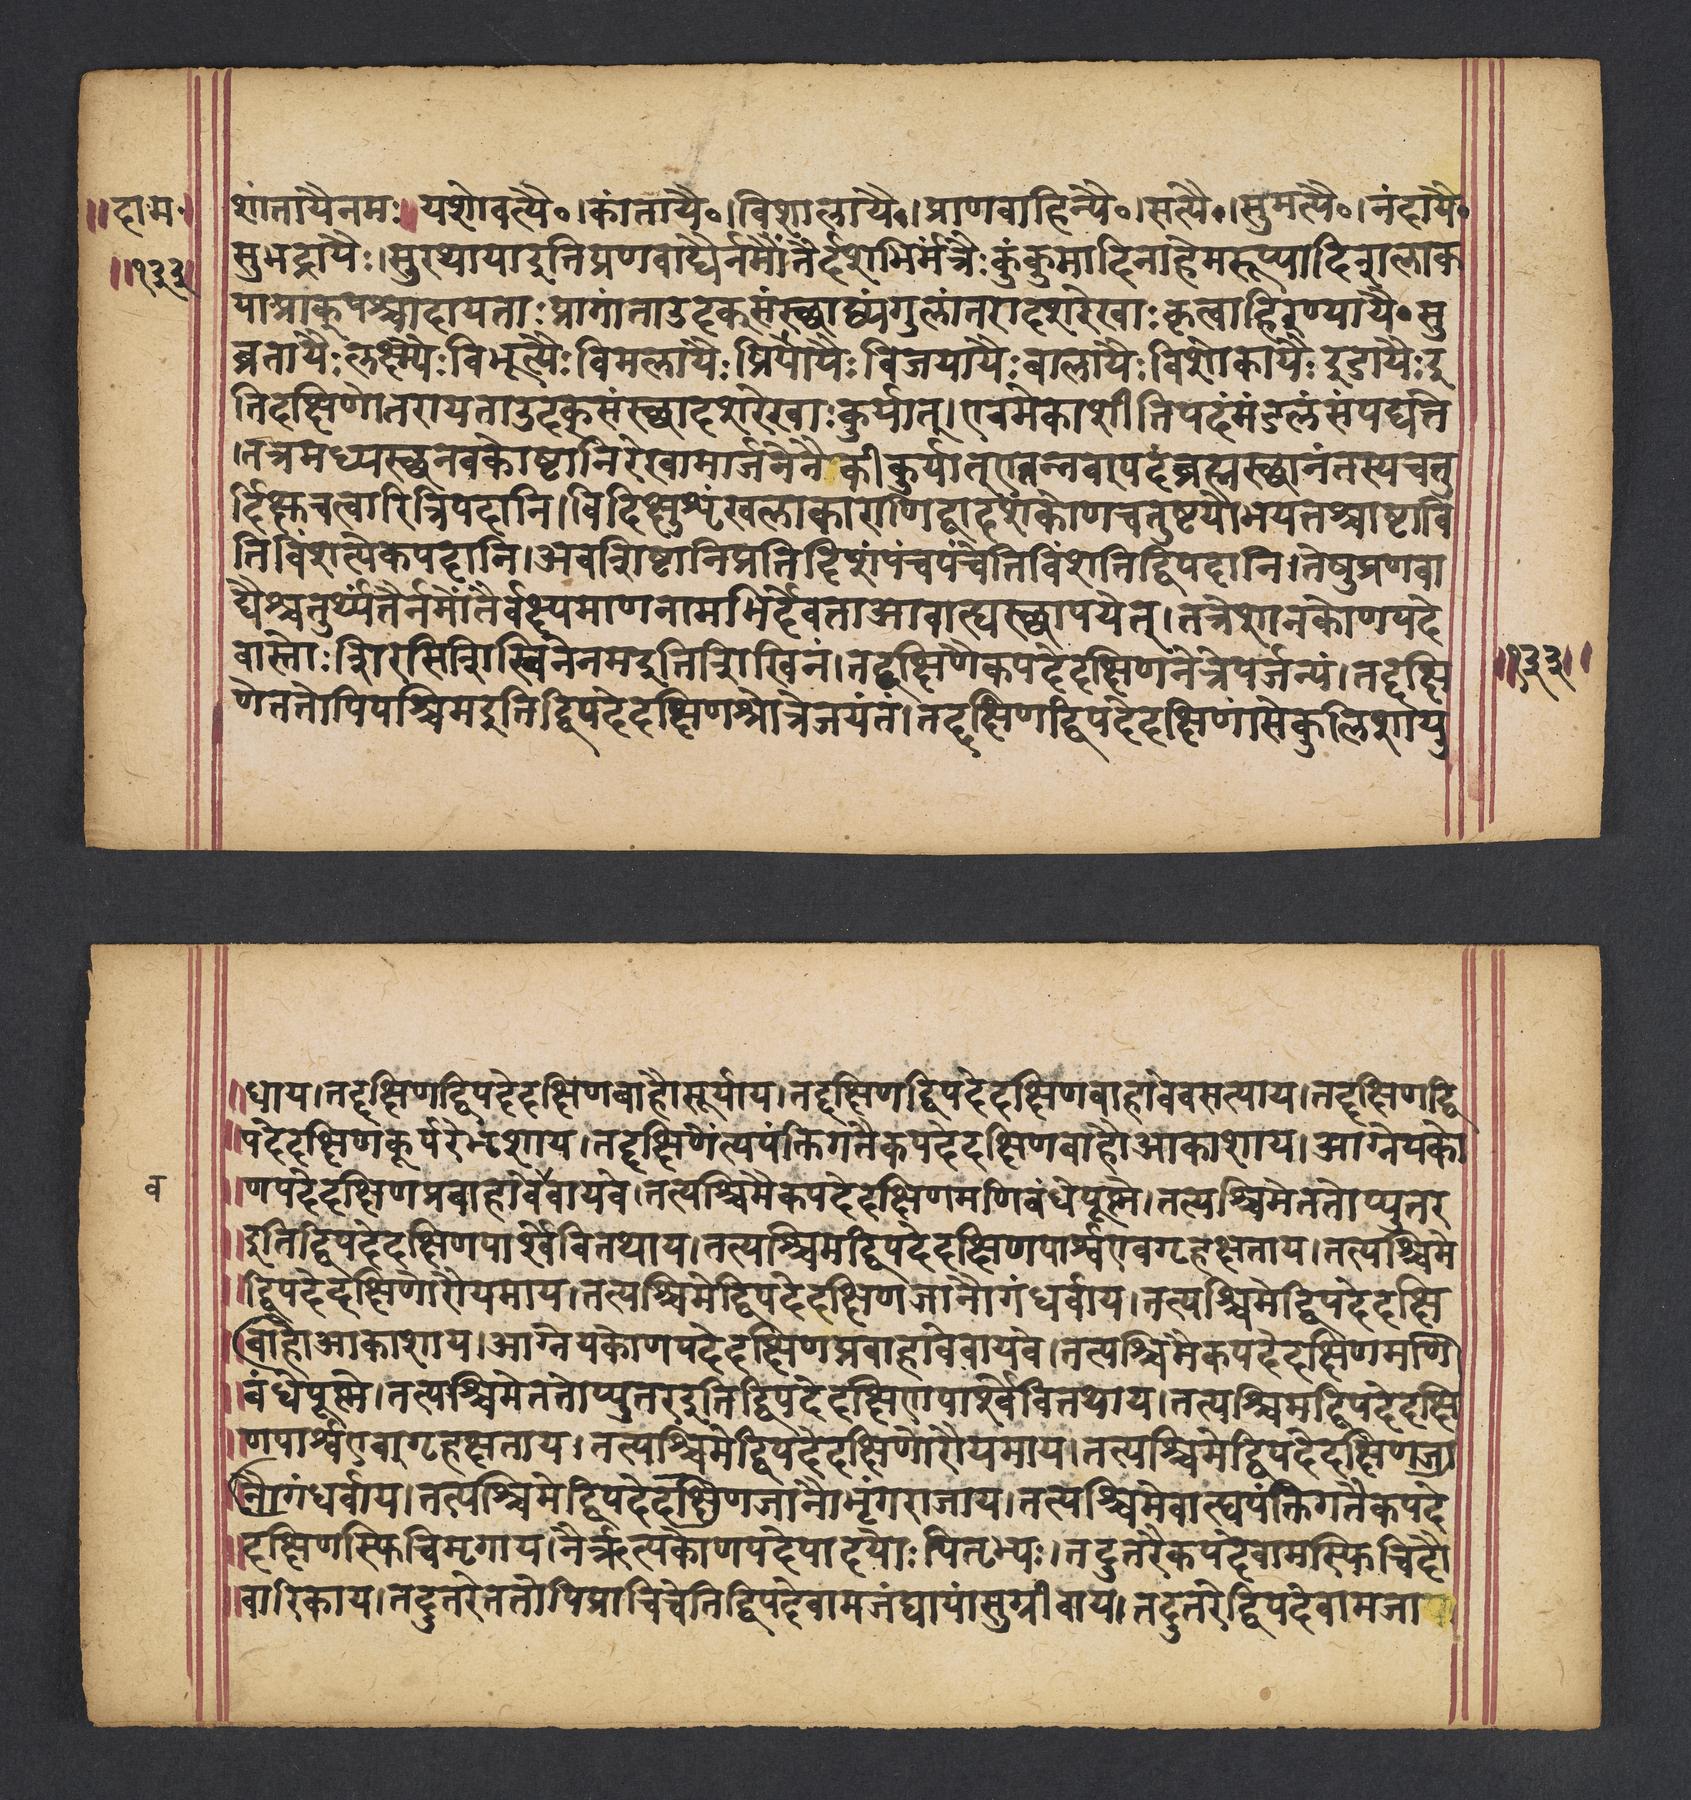 ॥दाम॰
॥१३३
शांतायैनमः॥यशोवत्यै॰।कांतायै॰।विशालायै॰।प्राणवाहिन्यै॰।सत्यै॰।सुमत्यै॰।नंदायै॰
सुभद्रायैः।सुरथायादुतिप्रणवाद्यैर्नमोंतैर्दशभिर्मंत्रैःकुंकुमादिनाहेमरूप्यादिशलाक
याप्राक्पश्चादायताःप्रागंताउदक्संस्छाद्व्यंगुलांतरादशरेखाःकृत्वाहिरण्यायै॰सु
व्रतायैःलक्ष्म्यैःविभूत्यैःविमलायैःप्रियायैःविजयायैःबालायैःविशोकायैःइडायैःइ
तिदक्षिणोतरायताउदक्संस्छादशरेखाःकुर्यात्।एवमेकाशीतिपदंमंडलंसंपद्यते
।तत्रमध्यस्छनवकोष्टानिरेखामार्जनेनैकीकुर्यात्एतन्नवापदंब्रह्मस्छानंतस्यचतु
र्दिक्षचत्वारित्रिपदानि।विदिक्षुशृंखलाकाराणिद्वादशकोणचतुष्टयोभयतश्चाष्टावि
तिविंशत्येकपदानि।अवशिष्टानिप्रतिदिशंपंचपंचेतिविंशतिद्विपदानि।तेषुप्रणवा
द्यैश्चतुर्थ्यंतैर्नमोंतैर्वक्ष्यमाणनामभिर्देवताआवाह्यस्छापयेत्।तत्रेशानकोणपदे
वास्तोःशिरसिशिखिनेनमइतिशिखिनं।तद्दक्षिणैकपदेदक्षिणनेत्रेपर्जन्यं।तद्दक्षि
॥१३३॥
णेततोपिपश्चिमइतिद्विपदेदक्षिणश्रोत्रेजयंतं।तद्दक्षिणद्विपदेदक्षिणांसेकुलिशायु
॥धाय।तद्दक्षिणद्विपदेदक्षिणबाहौसूर्याय।तद्दक्षिणद्विपदेदक्षिणबाहावेवसत्याय।तद्दक्षिणद्वि
पदेदक्षिणकूर्परेभृशाय।तद्दक्षिणेंत्यपंक्तिगतैकपदेदक्षिणबाहौआकाशाय।आग्नेयको
व
णपदेदक्षिणप्रबाहावेवायवे।तत्पश्चिमैकपदेदक्षिणमणिबंधेपूष्णे।तत्पश्चिमेततोप्युतर
इतिद्विपदेदक्षिणपार्श्वेवितथाय।तत्पश्चिमद्विपदेदक्षिणपार्श्वएवगृहक्षताय।तत्पश्चिमे
द्विपदेदक्षिणोरौयमाय।तत्पश्चिमेद्विपदेदक्षिणजानौगंधर्वाय।तत्पश्चिमेद्विपदेदक्षि
बाहौआकाशाय।आग्नेयकोणपदेदक्षिणप्रबाहावेवायवे।तत्पश्चिमैकपदेदक्षिणमणि
बंधेपूष्णे।तत्पश्चिमेततोप्युतरइतिद्विपदेदक्षिणपार्श्वेवितथाय।तत्पश्चिमद्विपदेदक्षि
णपार्श्वएवगृहक्षताय।तत्पश्चिमेद्विपदेदक्षिणोरौयमाय।तत्पश्चिमेद्विपदेदक्षिणजा
नौगंधर्वाय।तत्पश्चिमेद्विपदेदक्षिणजानौभृंगराजाय।तत्पश्चिमेबाह्यपंक्तिगतैकपदे
दक्षिणस्फिचिमृगाय।नैर्ऋत्यकोणपदेपादयोःपितृभ्यः।तदुतरैकपदेवामस्फिचिदौ
वारिकाय।तदुतरेततोपिप्राचिचेतिद्विपदेवामजंघायांसुग्रीवाय।तदुतरेद्विपदेवामजा